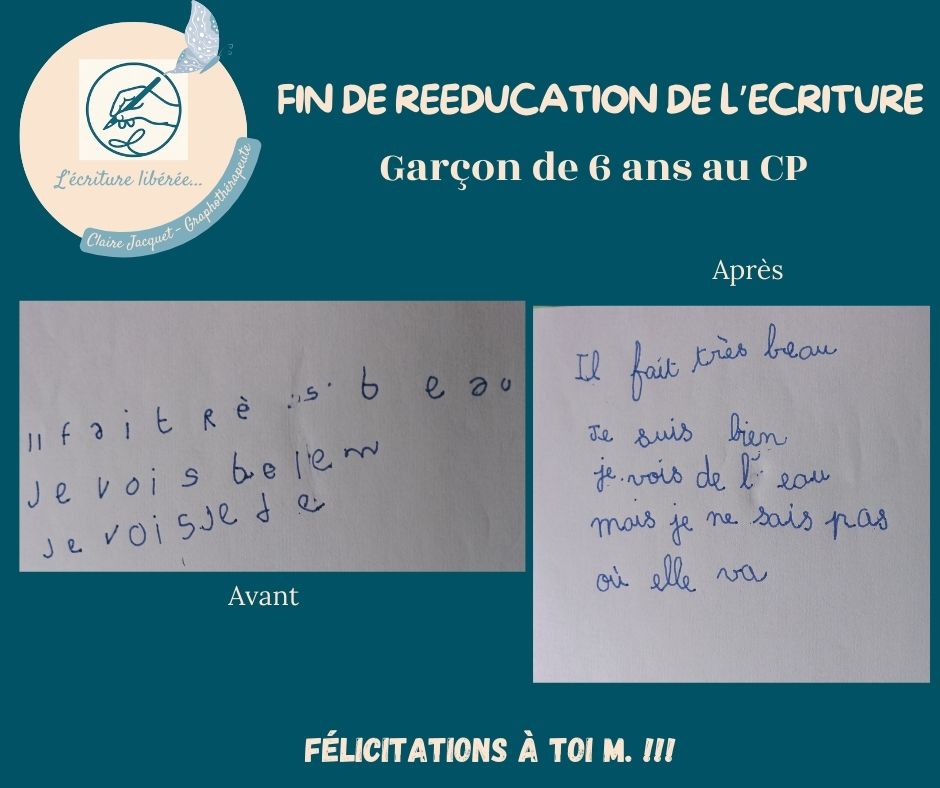 L'écriture libérée...
Claire Jacquet - Graphothérapeute
FIN DE REEDUCATION DE L'ECRITURE
Garçon de 6 ans au CP
Après
Il fait très beau
Je suis bien
je vois de l' eau
mais je ne sais pas
où elle va
Il f a i t R è s b e a u
Je vois
Je vois
Avant
FÉLICITATIONS À TOI M. !!!